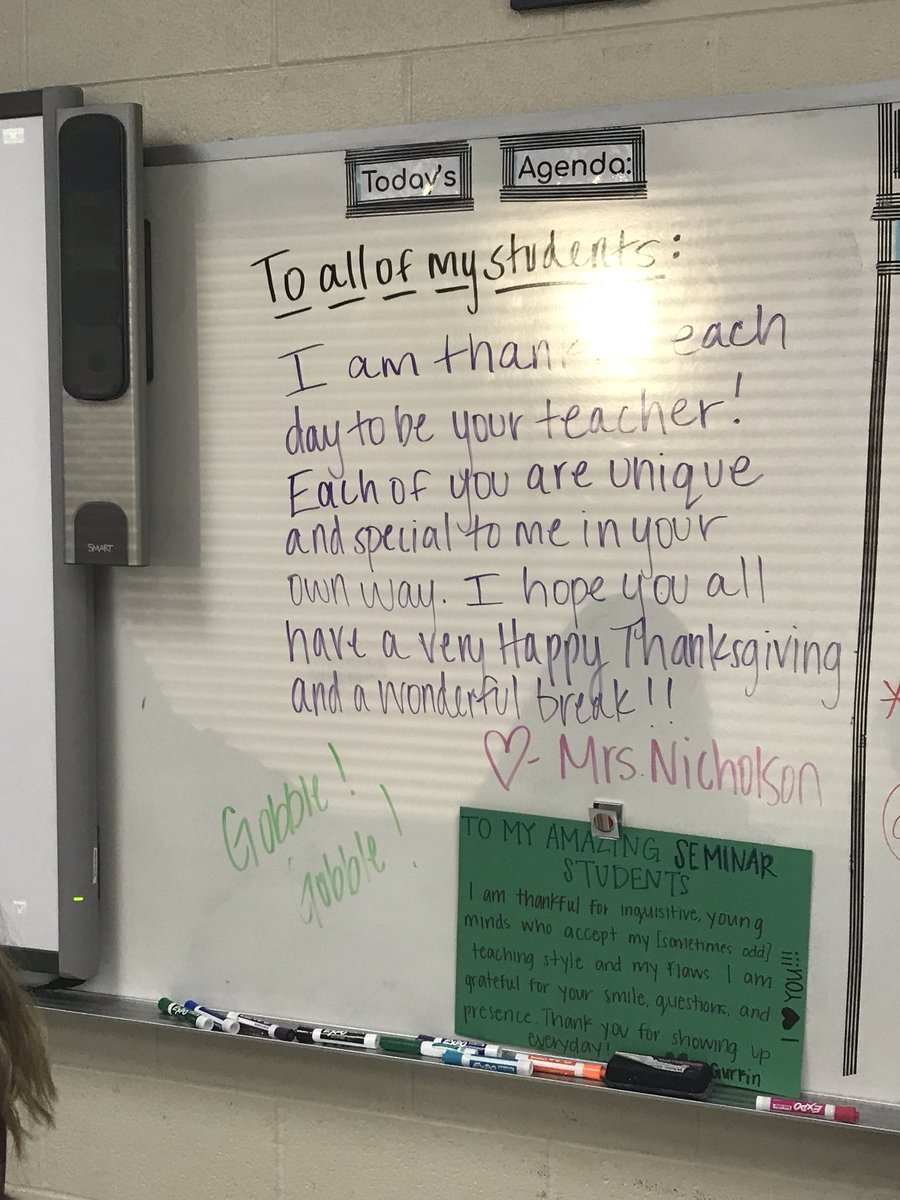 Today's Agenda:
To all of my students:
I am than each
day to be your teacher!
Each of you are unique
and special to me in your
own way. I hope you all
have a very Happy Thanksgiving
and a wonderful break!!
♡- Mrs. Nicholson
Gobble!
Gobble!
TO MY AMAZING SEMINAR
STUDENTS
I am thankful for inquisitive, young
minds who accept my [sometimes odd]
teaching style and my flaws. I am
grateful for your smile, questions, and
presence. Thank you for showing up
everyday!
Gurkin
I ♥ YOU!!!
SMART
EXPO
EXPO
EXPO
EXPO
EXPO